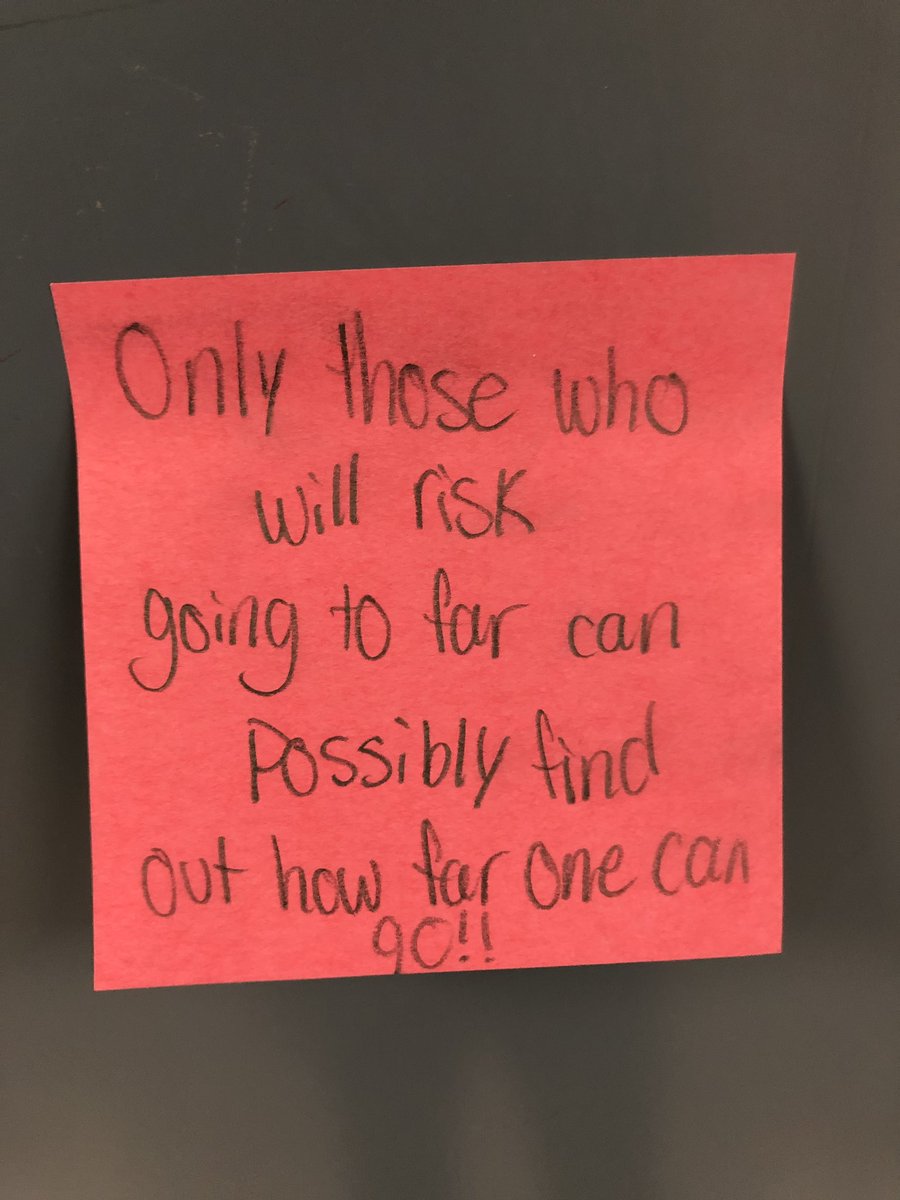 Only those who
will risk
going to far can
Possibly find
out how far one can
go!!